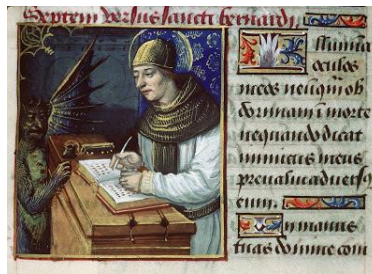 Septem versus sancti bernardi.
Illumina
oculos
meos ne unq̄ ob
dormiam ī morte
nequando dicat
inimicus meus
prevalui advers⁹
eum.
In manus
tuas domine com